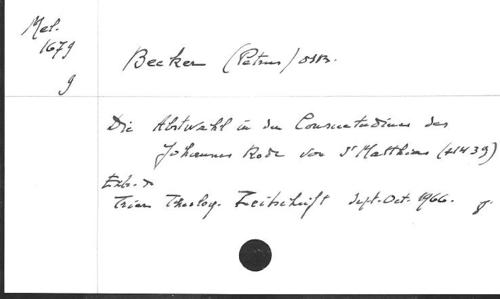 Mel.
1679
g
Becker (Petrus) OSB.
Die Abtwahl in den Consuetudines des
Johannes Rode von St Matthias (+1439)
Extr. d
Trier Theolog. Zeitschrift Sept.-Oct. 1966. 8°